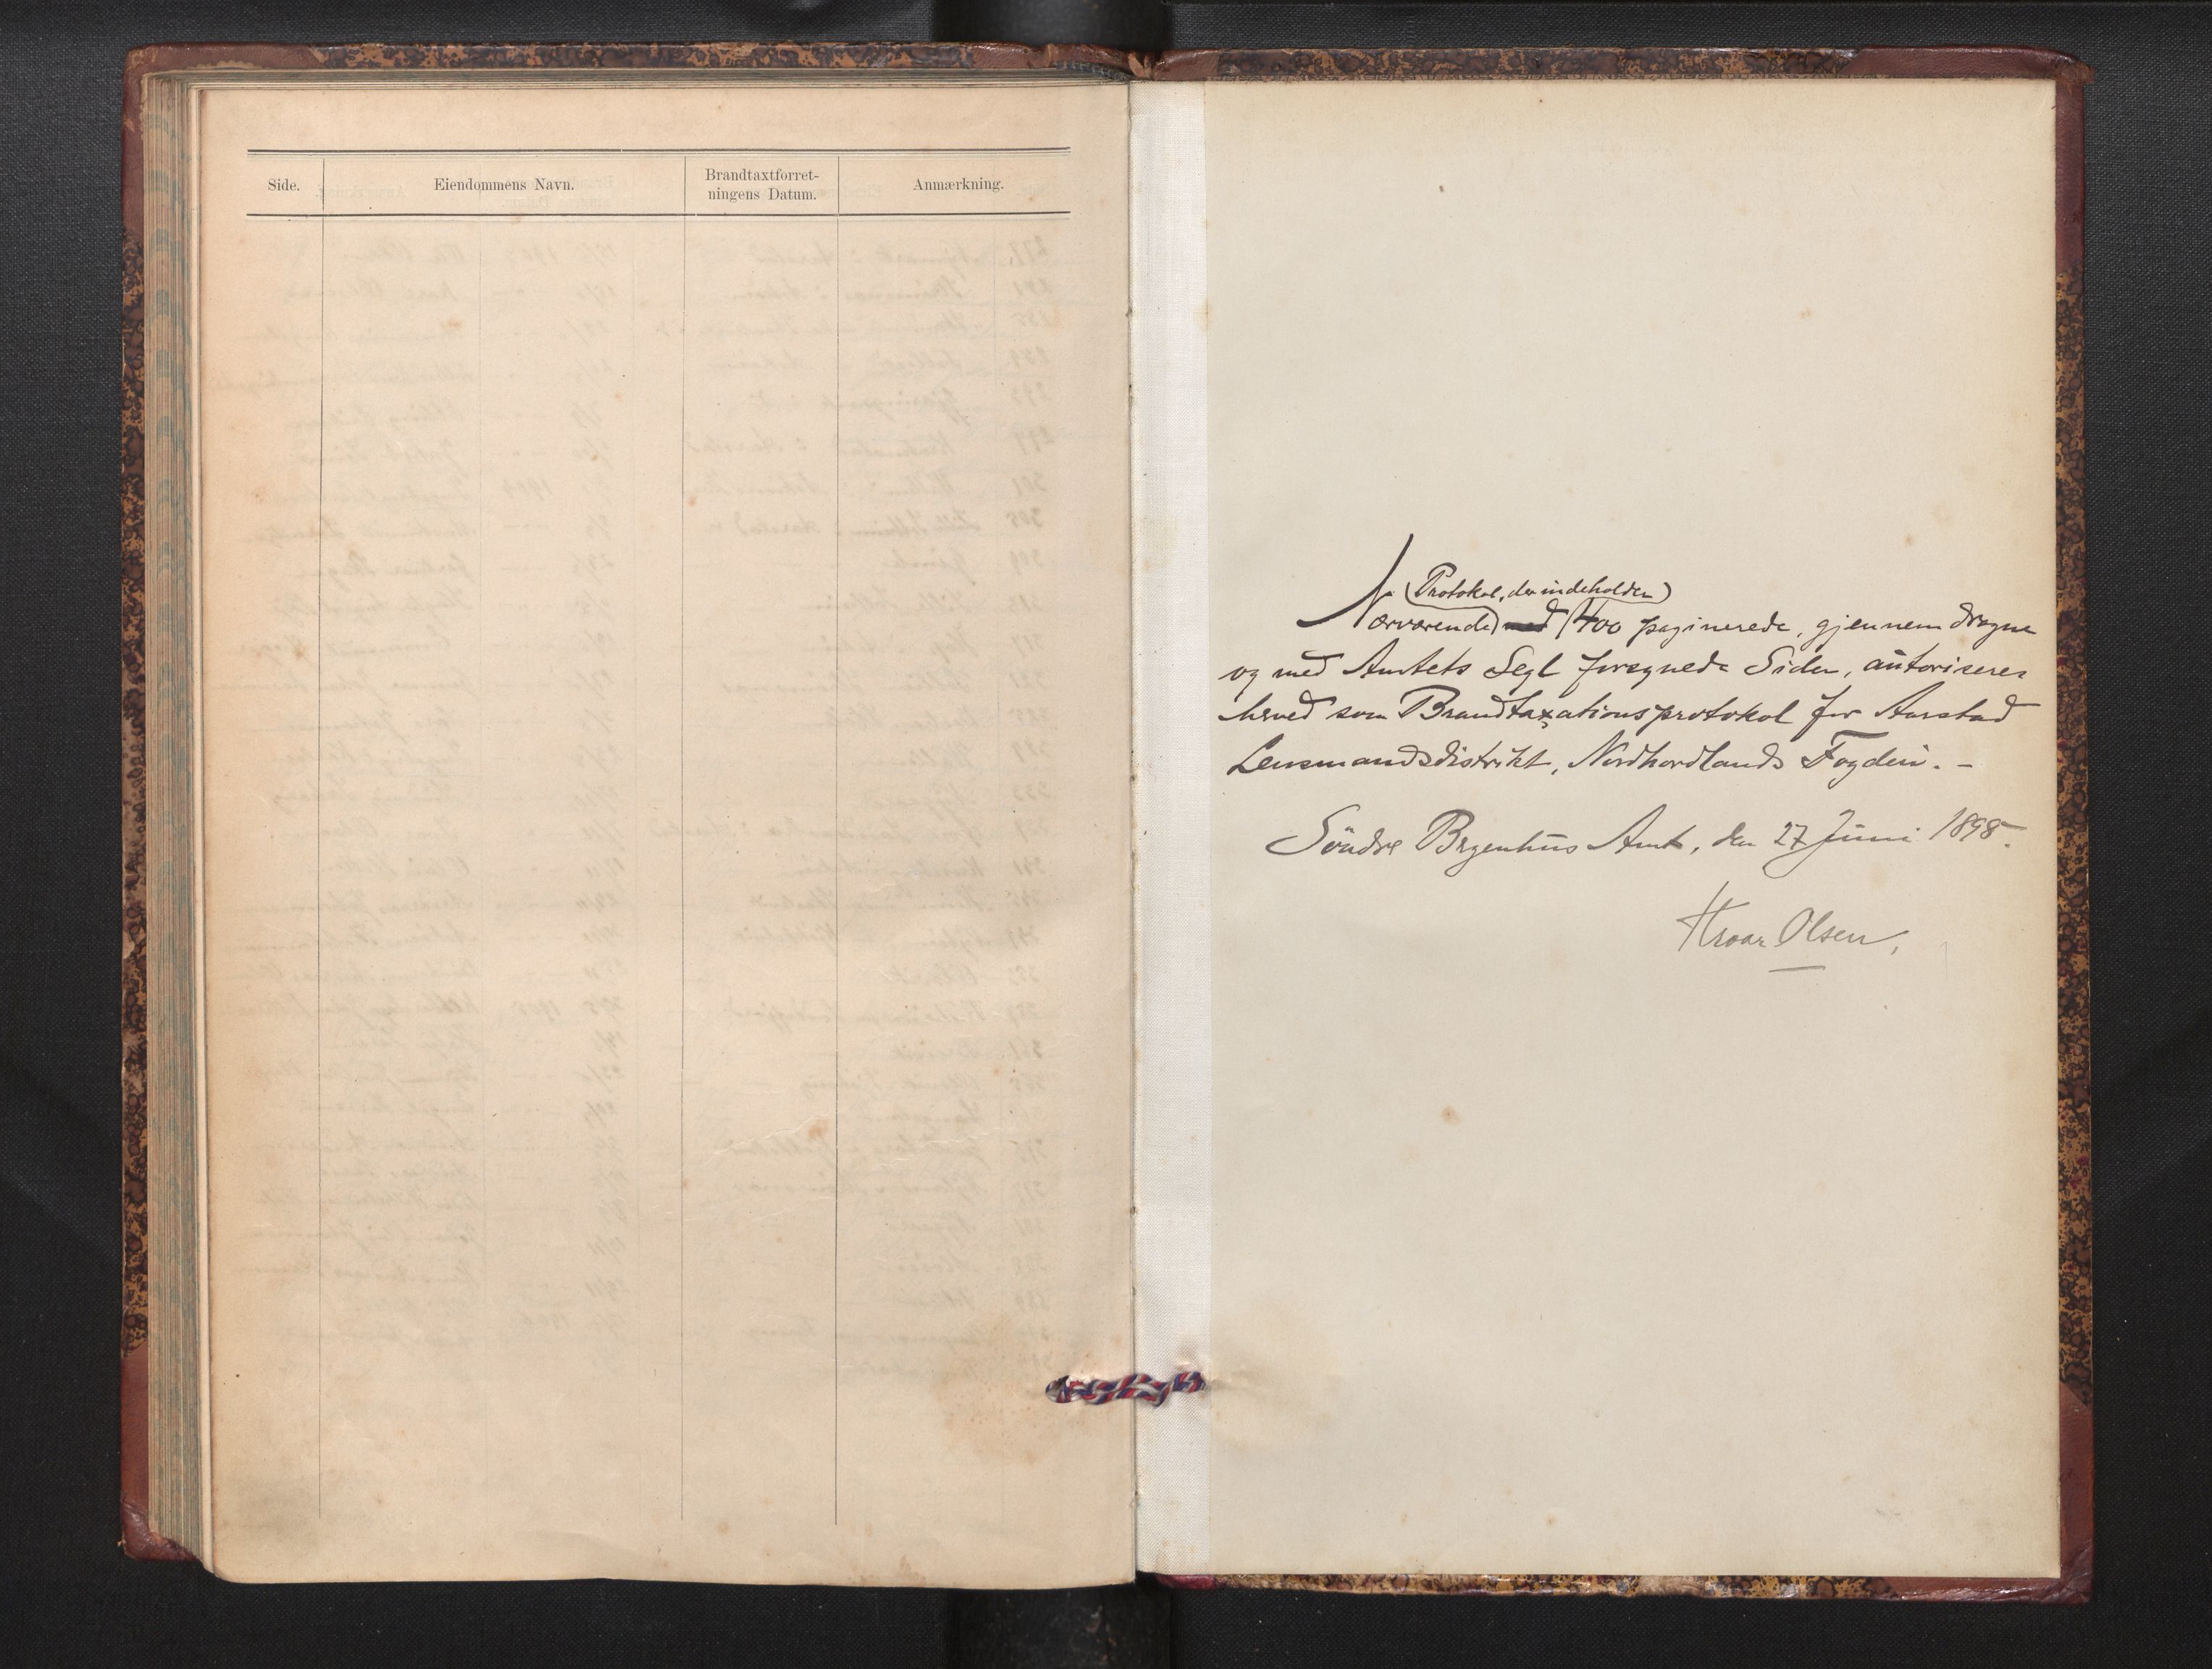 Side.
Eiendommens Navn.
Brandtaxtforret-
ningens Datum.
Anmærkning.
(Protokol, der indeholder)
Nærværende med 400 paginerede, gjennemdragne
og med Amtets Segl forsynede Sider, autoriseres
herved som Brandtaxationsprotokol for Aarstad
Lensmandsdistrikt, Nordhordlands Fogderi. -
Söndre Bergenhus Amt, den 27 Juni 1898.
Hroar Olsen,